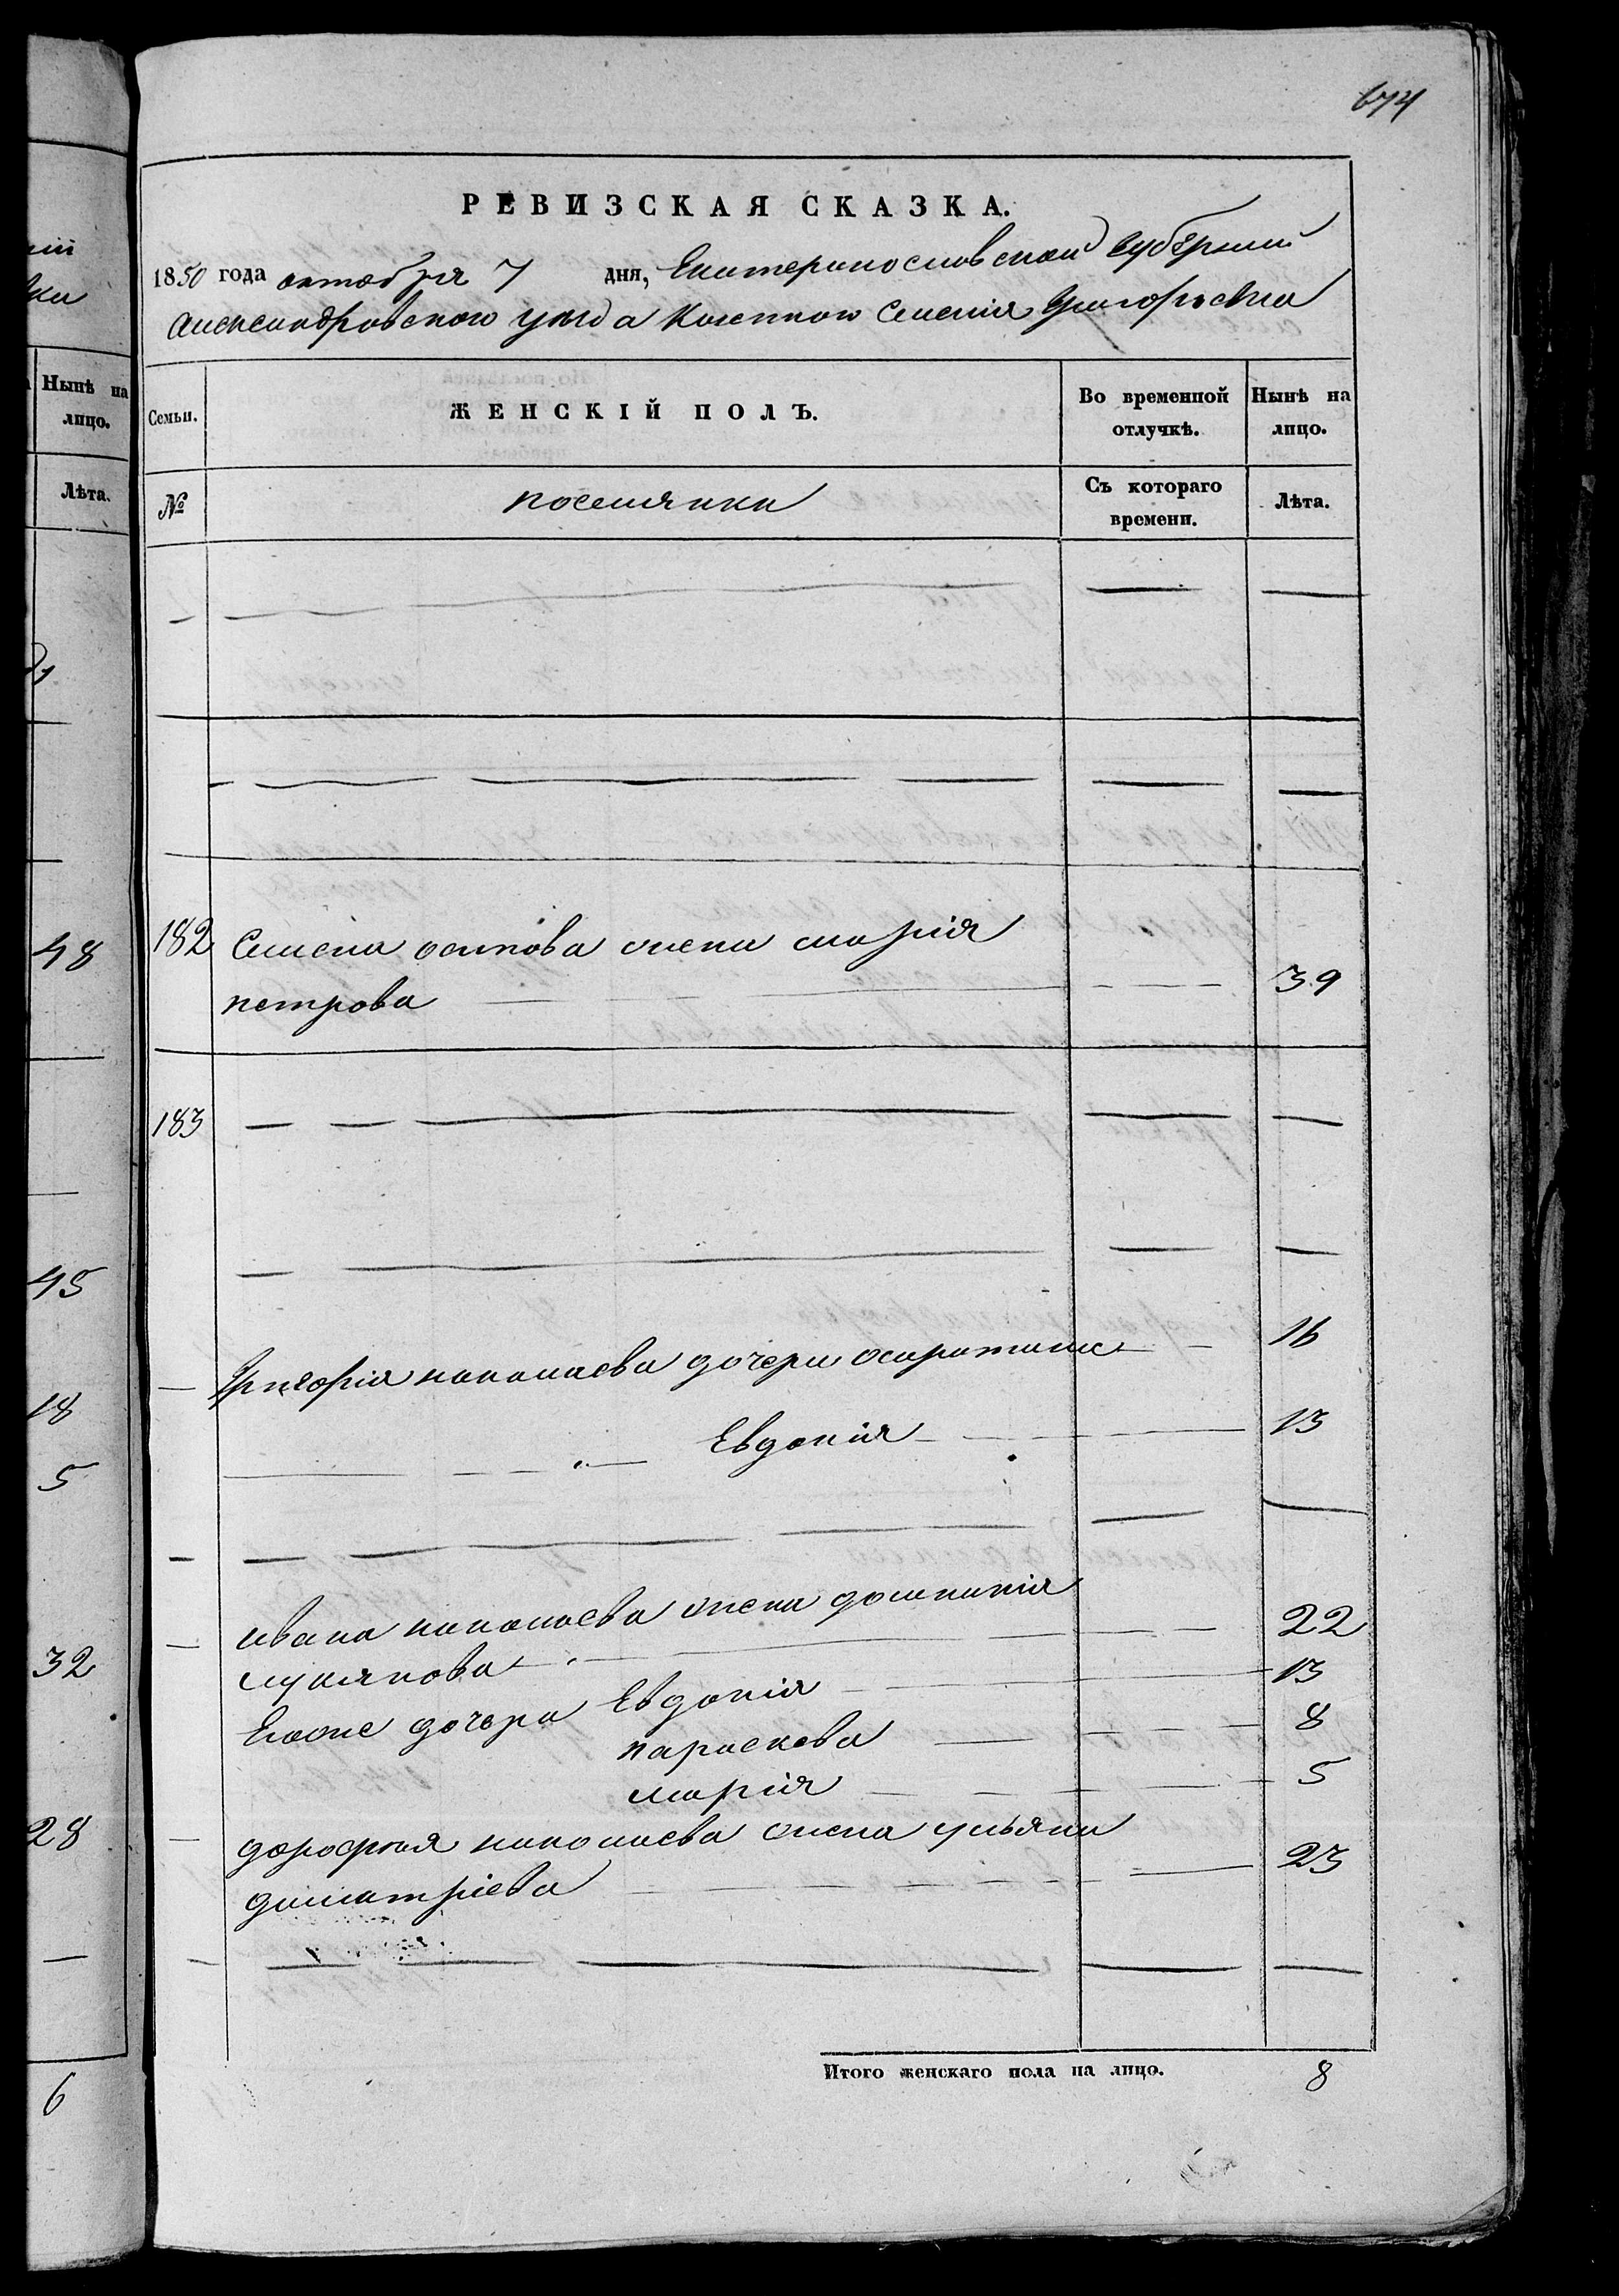 674
РЕВИЗСКАЯ СКАЗКА.
1850 года октября 7 дня, Екатеринославской губернии
Александровского уезда казенного селения Григорьевка
Семьи.
ЖЕНСКІЙ ПОЛЪ.
Во временной отлучкѣ.
Нынѣ на лицо.
№
поселянки
Съ котораго времени.
Лѣта.
182 Семена осипова жена марія
петрова 39
183
Григорія николаева дочери 16
Евдокія 13
ивана николаева жена домникія
лукянова 22
Евдокія 13
Егоже дочери
параскева 8
марія 5
дорофея николаева жена ульяна
димитріева 23
Итого женскаго пола на лицо. 8
Нынѣ на
лицо.
Лѣта.
48
45
18
5
32
28
6